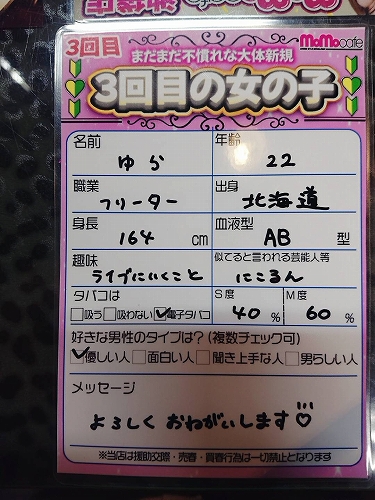 3回目
まだまだ不慣れな大体新規
MoMocafe
3回目の女の子
名前 ゆら
年齢 22
職業 フリーター
出身 北海道
身長 164 cm
血液型 AB 型
趣味 ライブにいくこと
似てると言われる芸能人等 にころん
タバコは □吸う □吸わない ☑電子タバコ
S度 40 %
M度 60 %
好きな男性のタイプは?(複数チェック可)
☑優しい人 □面白い人 □聞き上手な人 □男らしい人
メッセージ
よろしくおねがいします♡
※当店は援助交際・売春・買春行為は一切禁止となります